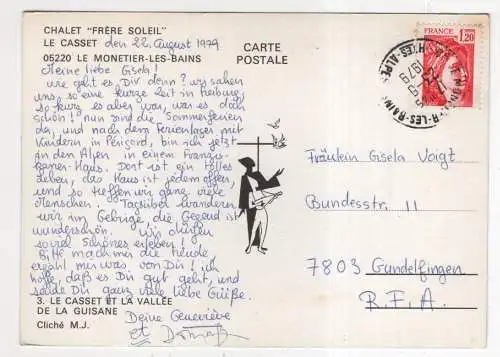 CHALET "FRÈRE SOLEIL"
LE CASSET den 22. August 1979
05220 LE MONETIER-LES-BAINS
Meine liebe Gisela!
Wie geht es Dir denn? Wir sahen
uns, so eine kurze Zeit in Freiburg,
so kurz es aber war, was es doch
schön! nun sind die Sommerferien
da, und nach dem Ferienlager mit
Kindern in Périgord, bin ich jetzt
in den Alpen in einem Franzis-
kaner-Haus. Dort ist ein tolles
Leben, das Haus ist jedem offen,
und so treffen wir ganz viele
Menschen. Tagsüber wandern
wir im Gebirge die Gegend ist
wunderschön. Wir dürfen
soviel Schönes erleben!
Bitte mach mir die Freude
erzähl mir was von Dir! ich
hoffe, daß es Dir gut geht, und
sende Dir ganz viele liebe Grüße.
3. LE CASSET ET LA VALLÉE
DE LA GUISANE
Deine Geneviève
Cliché M.J.
et
CARTE
POSTALE
FRANCE
1,20
1979
Fräulein Gisela Voigt
Bundesstr. 11
7803 Gundelfingen
R.F.A.